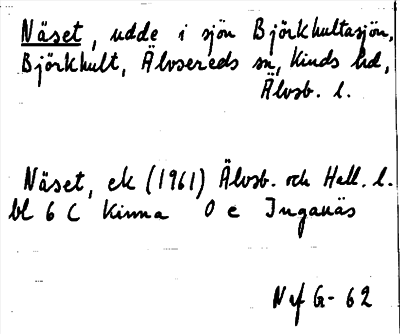 Näset, udde i sjön Björkhultasjön,
Björkhult, Älvsereds sn, Kinds hd,
Älvsb. l.
Näset, ek (1961) Älvsb. och Hall. l.
bl 6 C Kinna 0 e Inganäs
Nef G-62